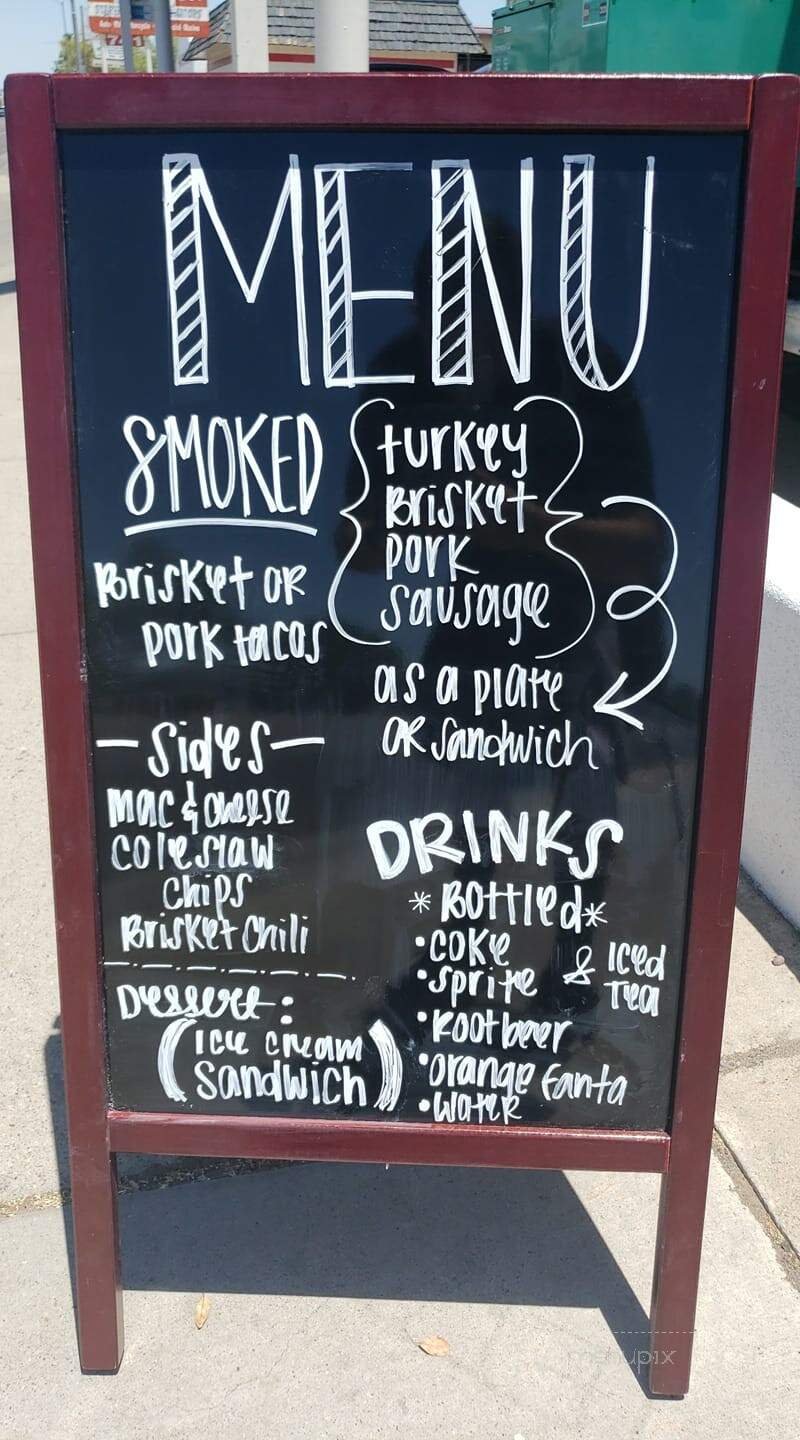 MENU
SMOKED
turkey
Brisket
pork
sausage
as a plate
or sandwich
Brisket or
pork tacos
-Sides-
mac & cheese
coleslaw
chips
Brisket chili
Dessert:
(ice cream
sandwich)
DRINKS
*Bottled*
•coke
•sprite
& Iced
Tea
•Rootbeer
•orange fanta
•water
menupix